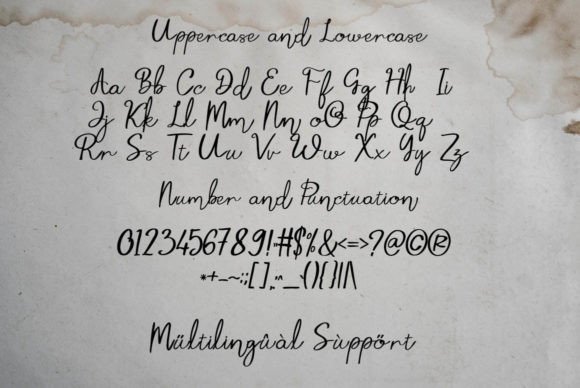 Uppercase and Lowercase
Aa Bb Cc Dd Ee Ff Gg Hh Ii
Jj Kk Ll Mm Nn oO Pp Qq
Rr Ss Tt Uu Vv Ww Xx Yy Zz
Number and Punctuation
0123456789!"#$%&<=>?@©®
*+-~:;[],."__`(){}|/\
Mùltilingûàl Sùppört